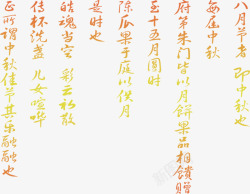 八月节者 即中秋也
每届中秋
府第朱门皆以月饼果品相馈赠
至十五月圆时
陈瓜果于庭以供月
是时也
皓魄当空 彩云初散
传杯洗盏 儿女喧哗
正所谓中秋佳节其乐融融也